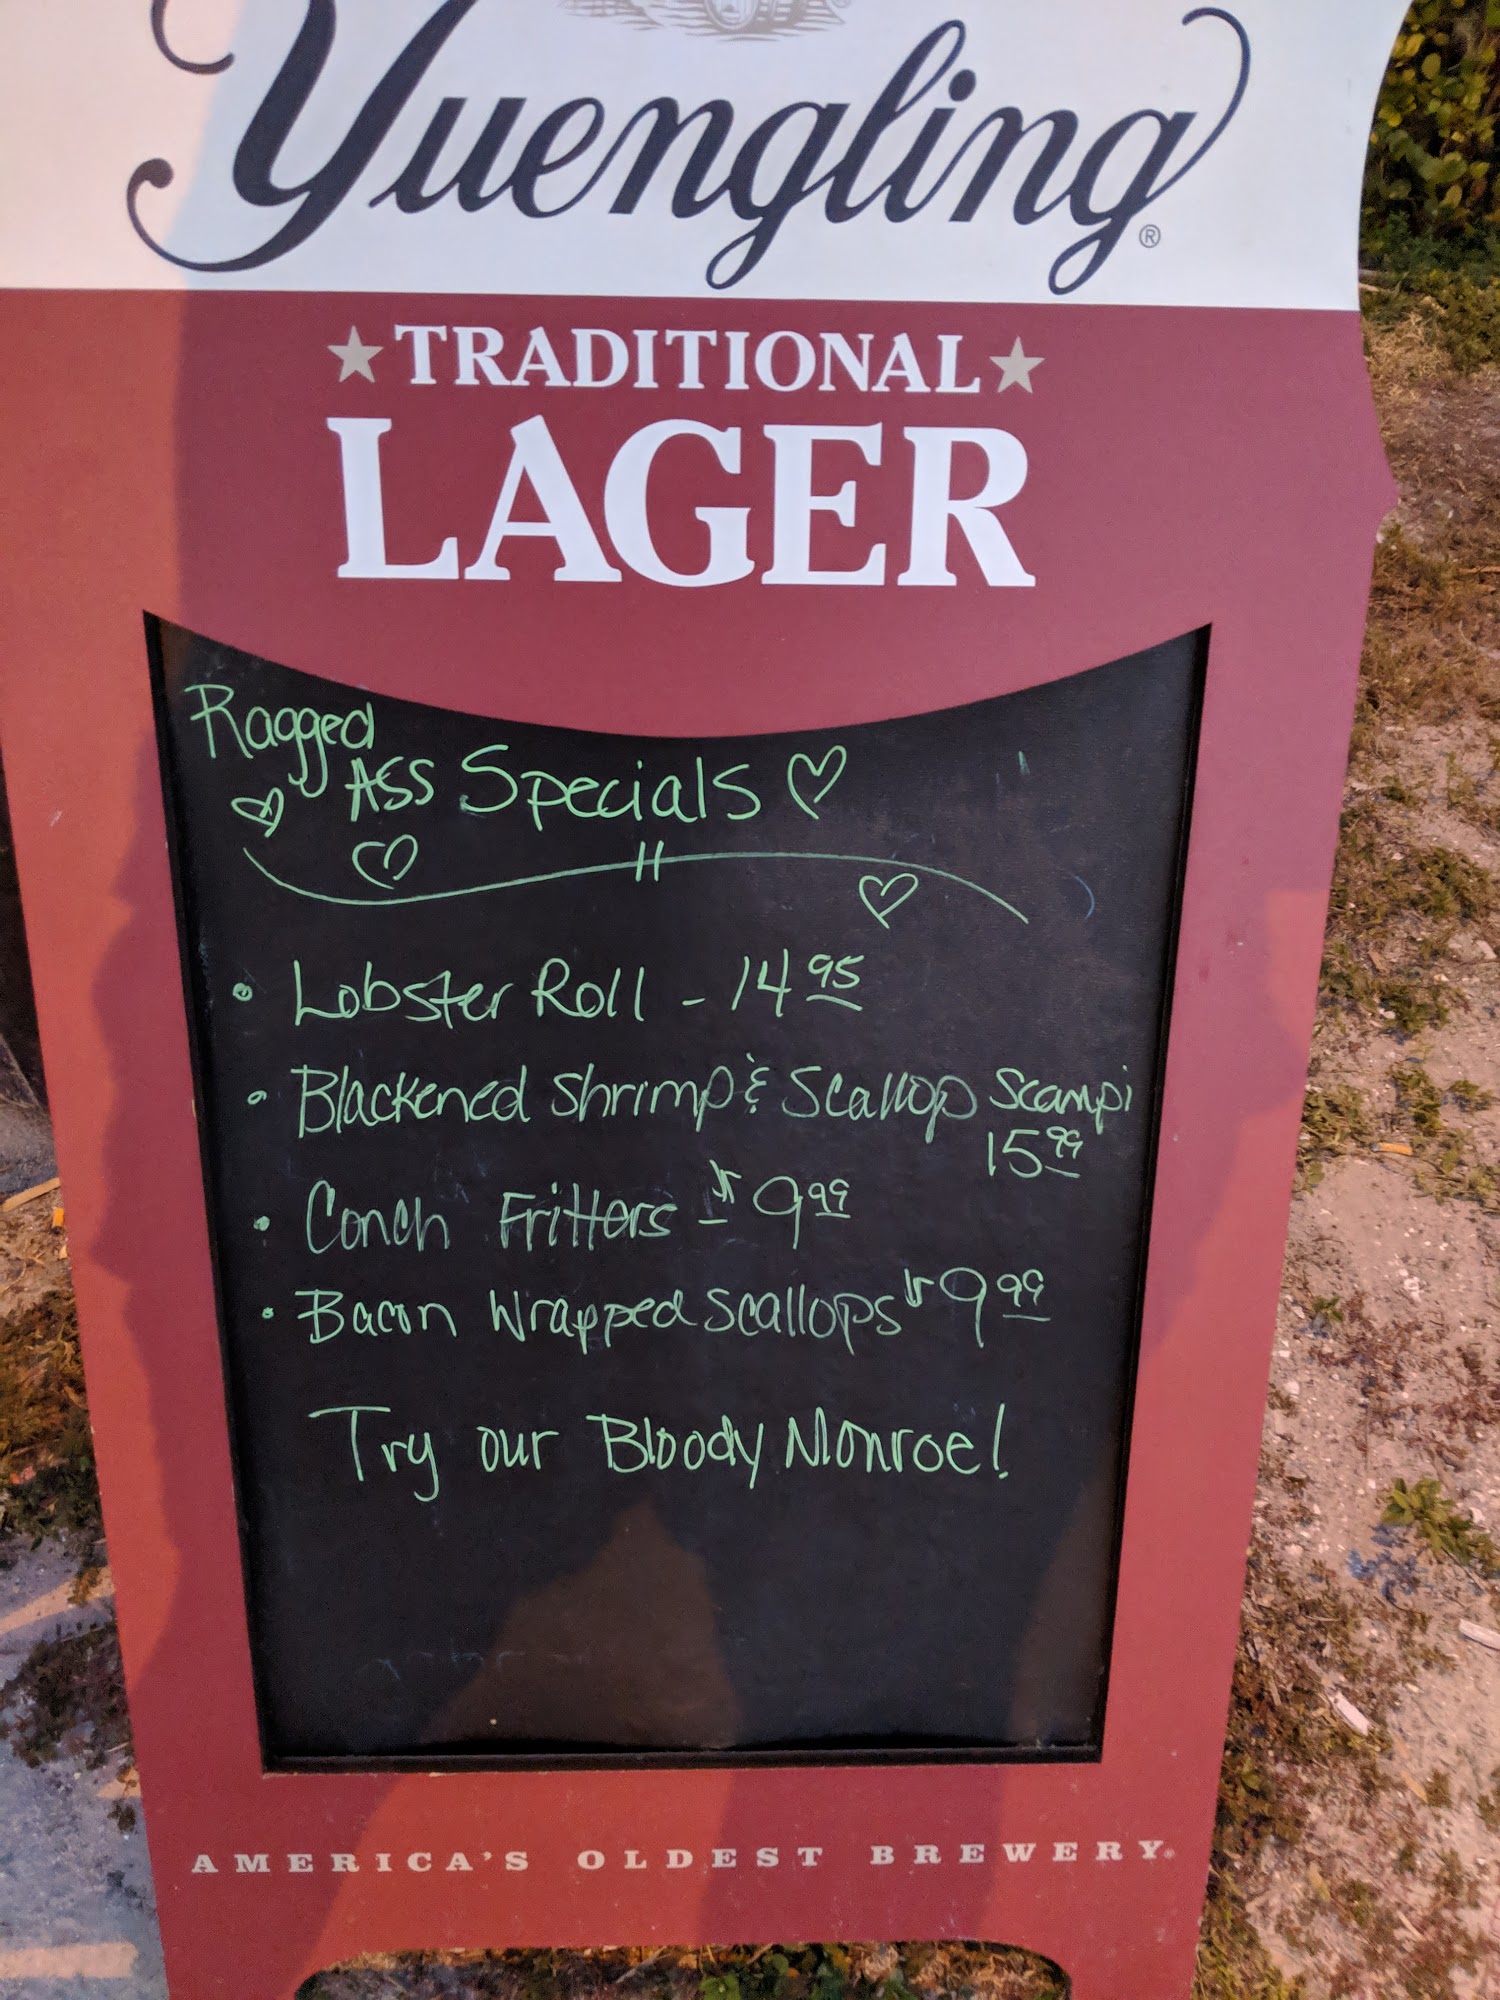 Yuengling®
TRADITIONAL
LAGER
Ragged
Ass Specials
• Lobster Roll - 14 95
• Blackened Shrimp & Scallop Scampi
15 99
• Conch Fritters - 9 99
• Bacon Wrapped Scallops 9 99
Try our Bloody Monroe!
AMERICA'S OLDEST BREWERY®